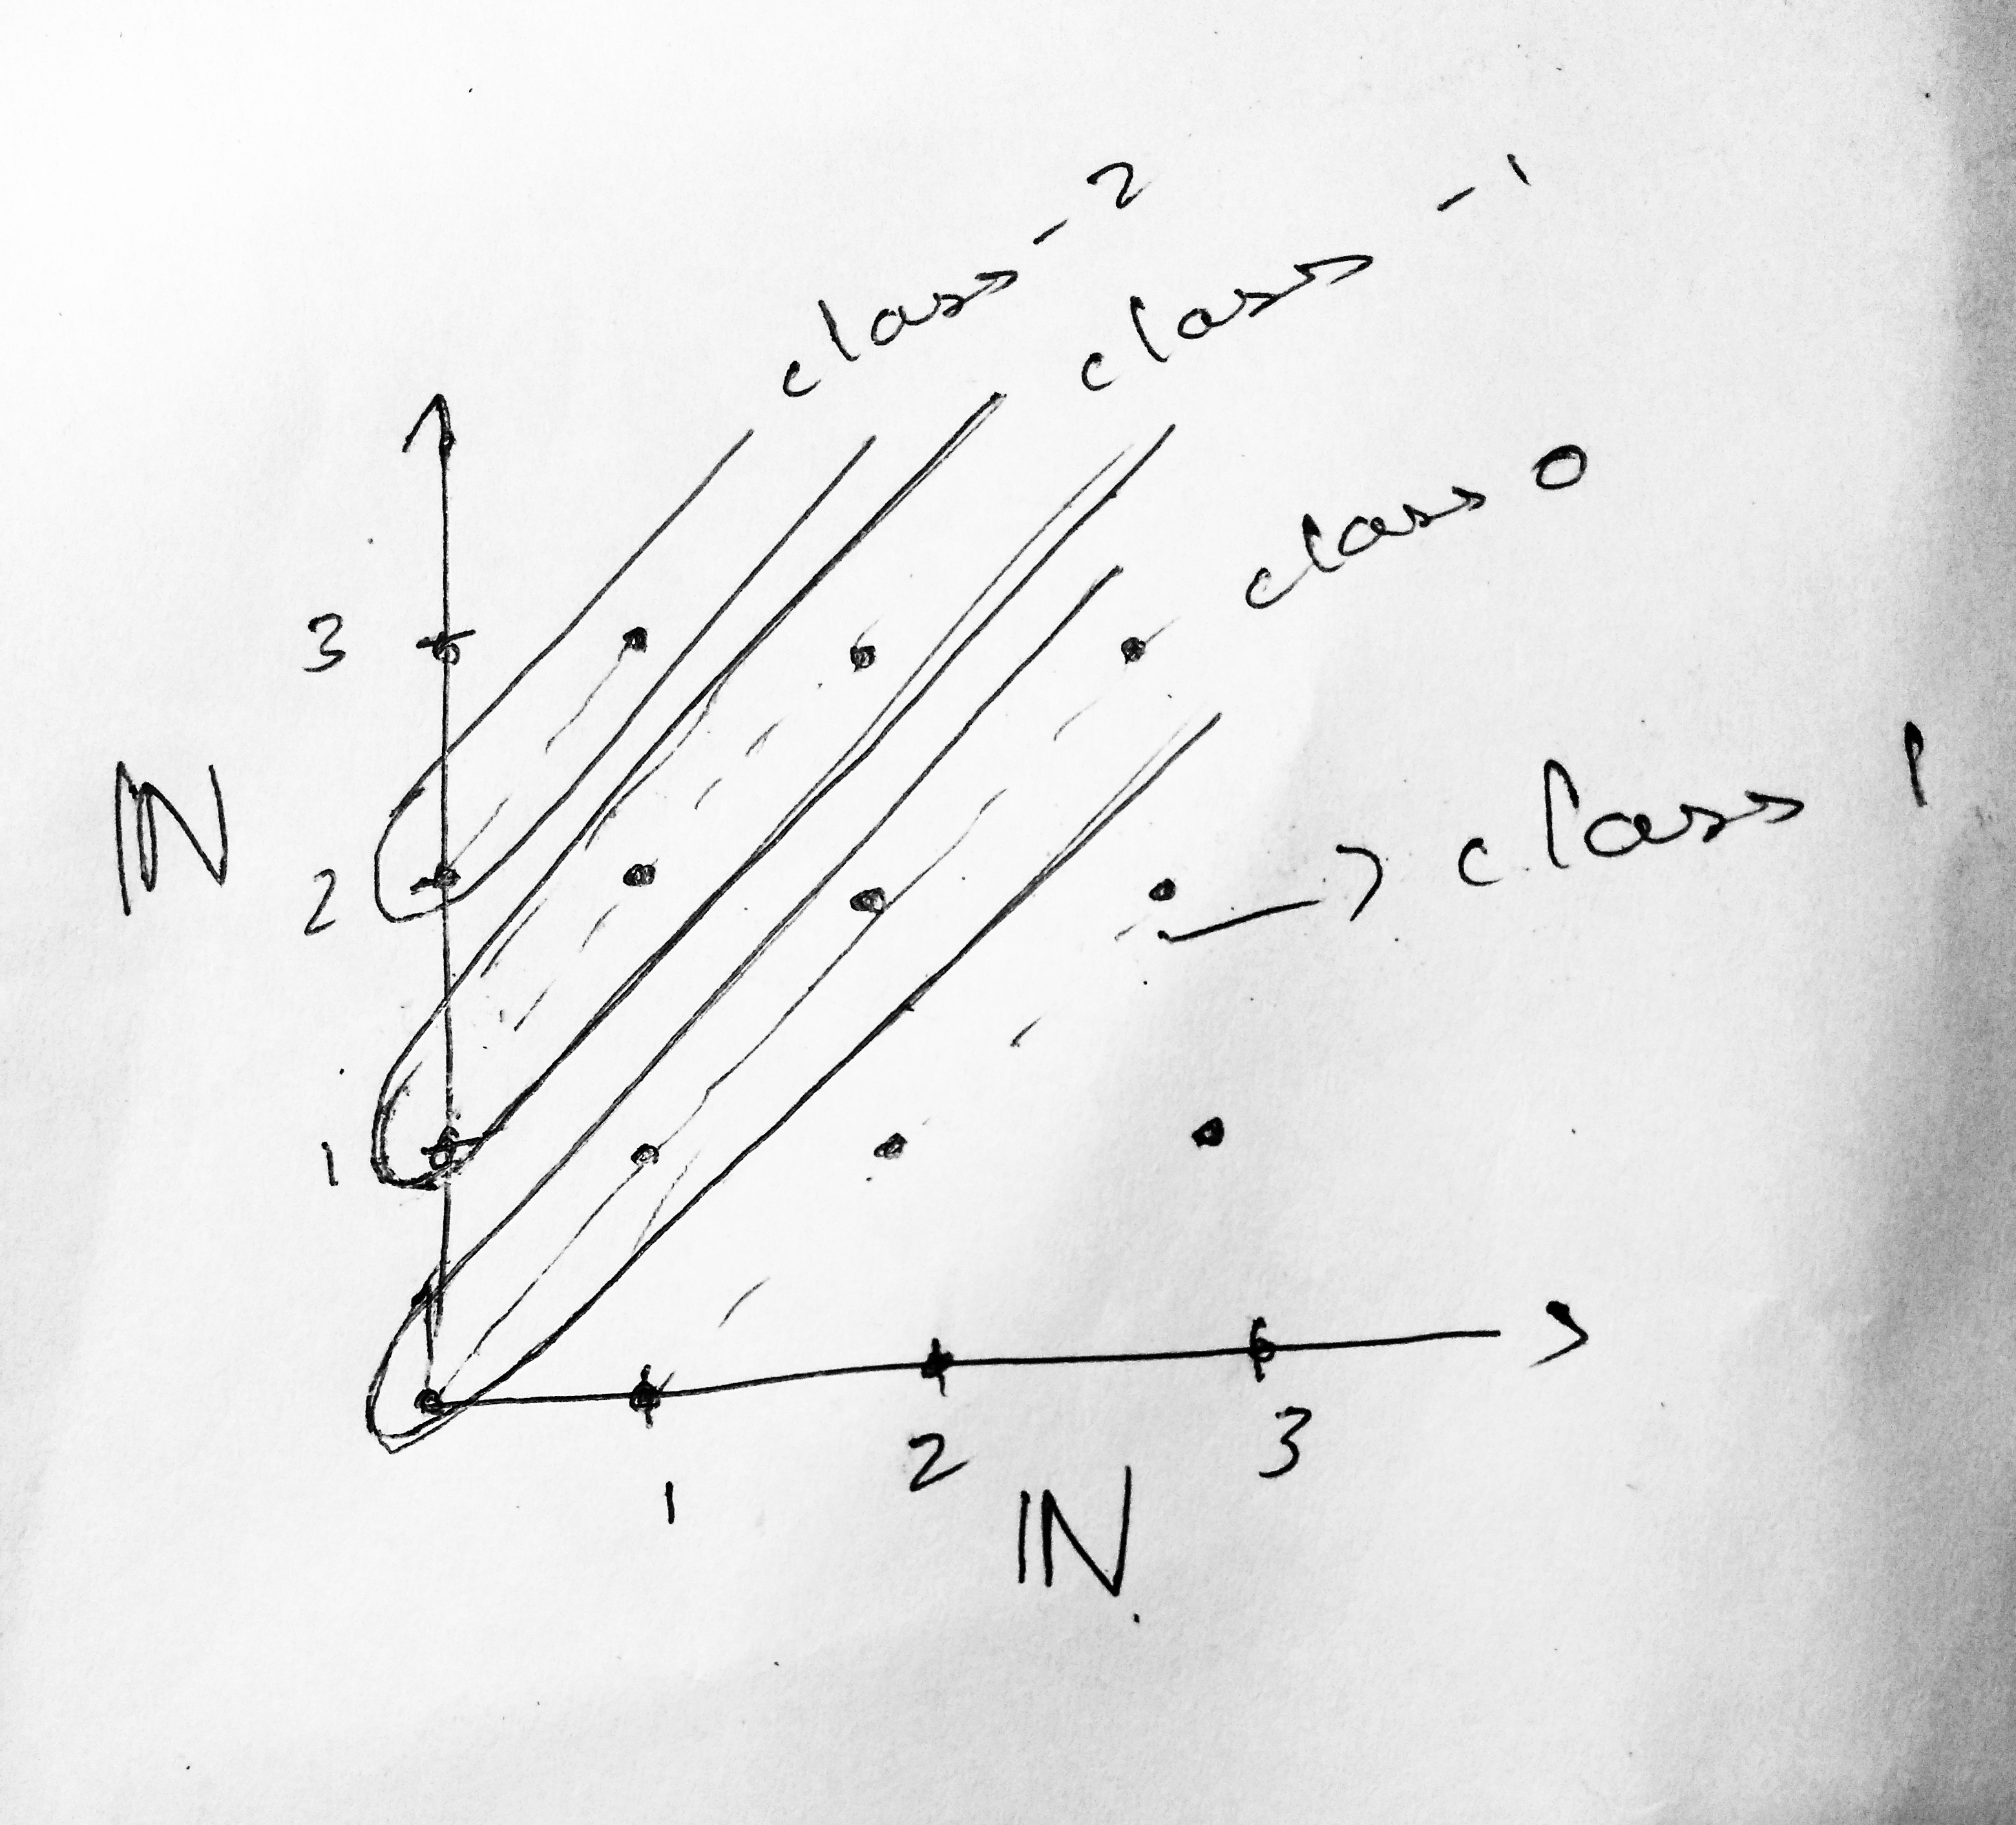 class -2
class -1
class 0
3
class 1
ℕ
2
1
1
2
3
ℕ